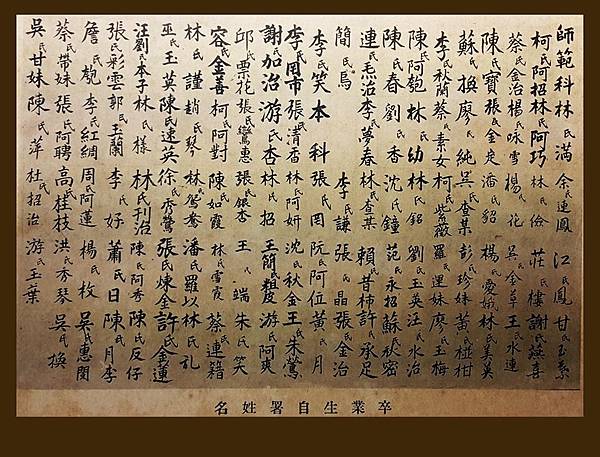 師範科林氏滿 余氏連鳳 江氏鳳 甘氏玉素
柯氏阿招 林氏阿巧 林氏儉 莊氏樓 謝氏燕喜
蔡氏金治 楊氏咏雪 楊氏花 吳氏金草 王氏水連
陳氏寶 張氏金定 潘氏貂 楊氏愛娥 林氏美英
蘇氏換 廖氏純 吳氏查某 彭氏珍妹 黃氏椪柑
李氏秋蘭 蔡氏素女 柯氏紫薇 羅氏運妹 廖氏玉梅
陳氏阿匏 林氏幼 林氏銘 劉氏玉英 汪氏水治
陳氏春 劉氏香 沈氏鐘 范氏永招 蘇氏秋密
連氏毛治 李氏夢春 林氏查某 賴氏昔柿 許氏承足
簡氏烏 李氏謙 張氏晶 張氏金治
李氏笑 本科 張氏罔 阮氏阿位 黃氏月
李氏罔市 張氏清香 林氏阿妍 沈氏秋金 王氏朱鶯
謝氏加治 游氏杏 林氏招 王氏簡粗皮 游氏阿爽
邱氏票花 張氏鶯惠 張氏銀杏 王氏端 朱氏笑
容氏金善 柯氏阿對 陳氏如霞 林氏雪霞 蔡氏連籍
林氏謹 趙氏琴 林氏鴛鴦 潘氏羅以 林氏乩
巫氏玉英 陳氏速英 徐氏香鶯 張氏煉金 許氏金蓮
汪氏劉本子 林氏樣 林氏刊治 陳氏阿香 陳氏反仔
張氏彩雲 郭氏玉蘭 李氏好 蕭氏日 陳氏月李
詹氏匏 李氏紅綢 周氏阿蓮 楊氏枚 吳氏惠閔
蔡氏帶妹 張氏阿聘 高氏桂枝 洪氏秀琴 吳氏換
吳氏甘妹 陳氏萍 杜氏招治 游氏玉葉
卒業生自署姓名